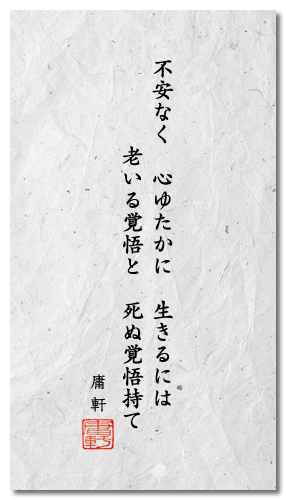 不安なく　心ゆたかに　生きるには
老いる覚悟と　死ぬ覚悟持て
庸軒